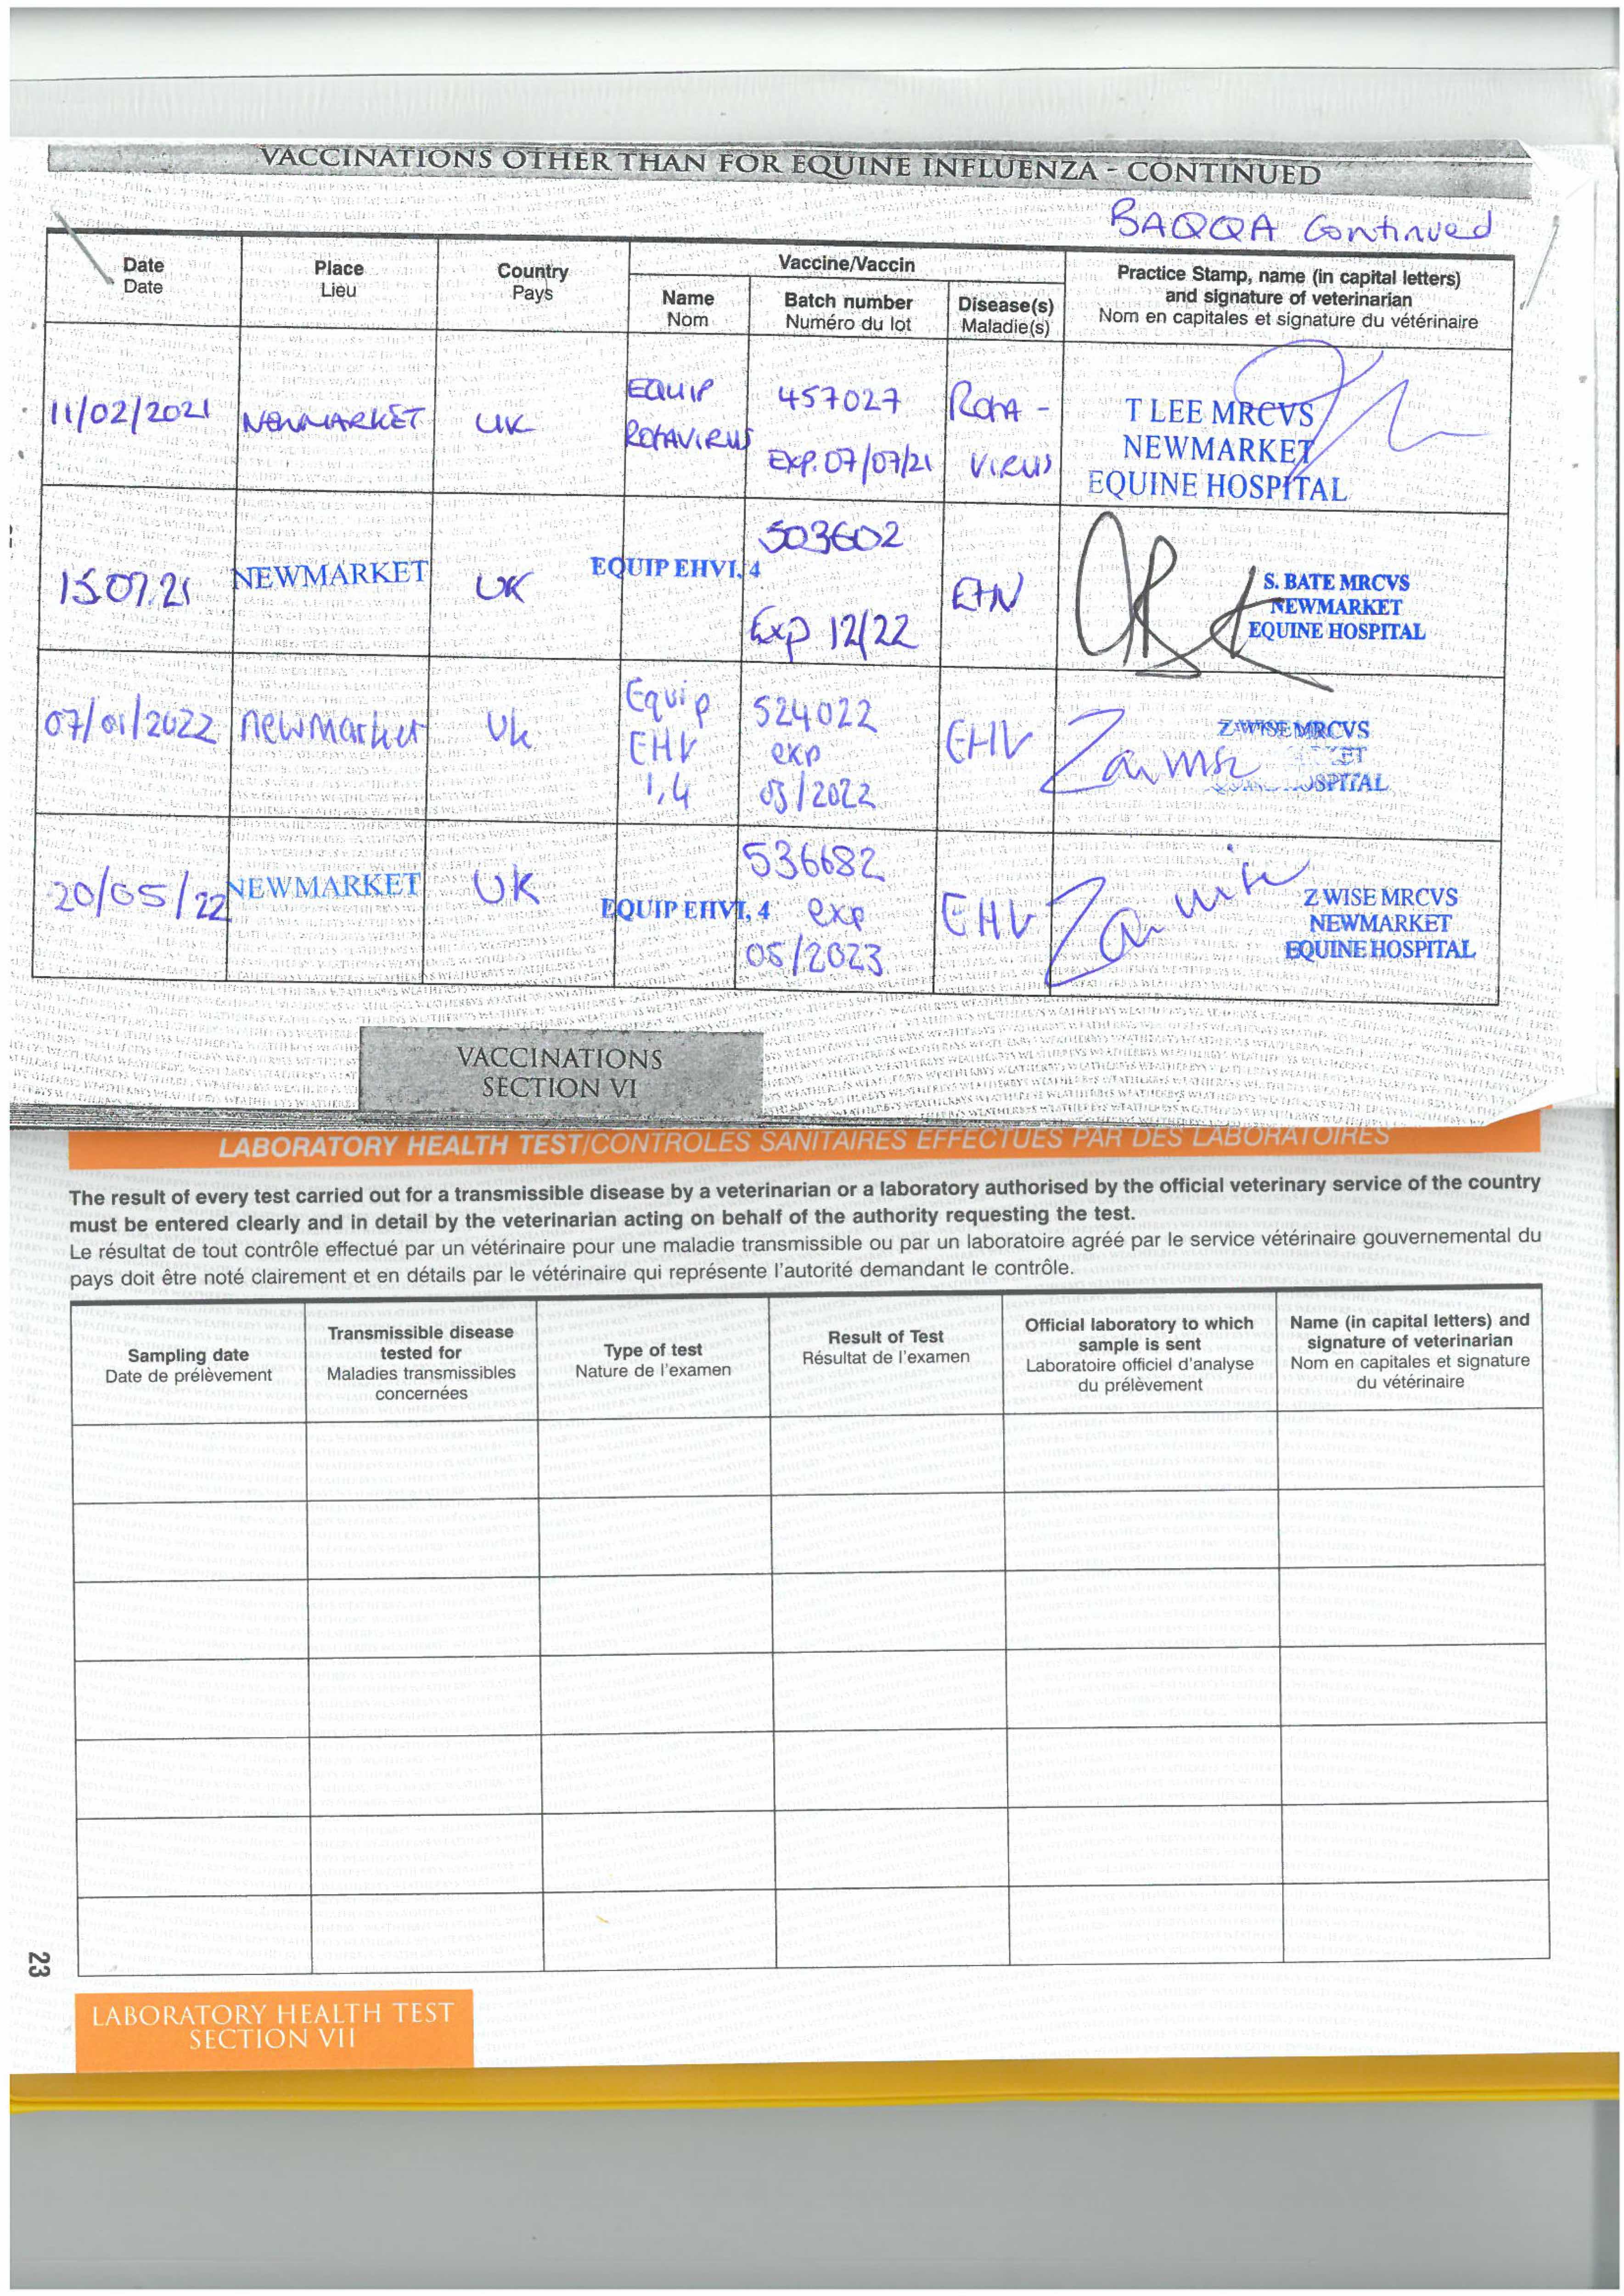 VACCINATIONS OTHER THAN FOR EQUINE INFLUENZA - CONTINUED
BAQQA Continued
Date
Date
Place
Lieu
Country
Pays
Vaccine/Vaccin
Name
Nom
Batch number
Numéro du lot
Disease(s)
Maladie(s)
Practice Stamp, name (in capital letters)
and signature of veterinarian
Nom en capitales et signature du vétérinaire
11/02/2021
NEWMARKET
UK
EQUIP
ROTAVIRUS
457027
EXP. 07/07/21
ROTA -
VIRUS
T LEE MRCVS
NEWMARKET
EQUINE HOSPITAL
15.07.21
NEWMARKET
UK
EQUIP EHV1,4
503602
Exp 12/22
EHV
S. BATE MRCVS
NEWMARKET
EQUINE HOSPITAL
07/01/2022
newmarket
Uk
Equip
EHV
1,4
524022
exp
05/2022
EHV
Z WISE MRCVS
20/05/22
NEWMARKET
UK
EQUIP EHV1, 4
536682
exp
05/2023
EHV
Z WISE MRCVS
NEWMARKET
EQUINE HOSPITAL
VACCINATIONS
SECTION VI
LABORATORY HEALTH TEST/CONTROLES SANITAIRES EFFECTUES PAR DES LABORATOIRES
The result of every test carried out for a transmissible disease by a veterinarian or a laboratory authorised by the official veterinary service of the country
must be entered clearly and in detail by the veterinarian acting on behalf of the authority requesting the test.
Le résultat de tout contrôle effectué par un vétérinaire pour une maladie transmissible ou par un laboratoire agréé par le service vétérinaire gouvernemental du
pays doit être noté clairement et en détails par le vétérinaire qui représente l'autorité demandant le contrôle.
Sampling date
Date de prélèvement
Transmissible disease
tested for
Maladies transmissibles
concernées
Type of test
Nature de l'examen
Result of Test
Résultat de l'examen
Official laboratory to which
sample is sent
Laboratoire officiel d'analyse
du prélèvement
Name (in capital letters) and
signature of veterinarian
Nom en capitales et signature
du vétérinaire
23
LABORATORY HEALTH TEST
SECTION VII